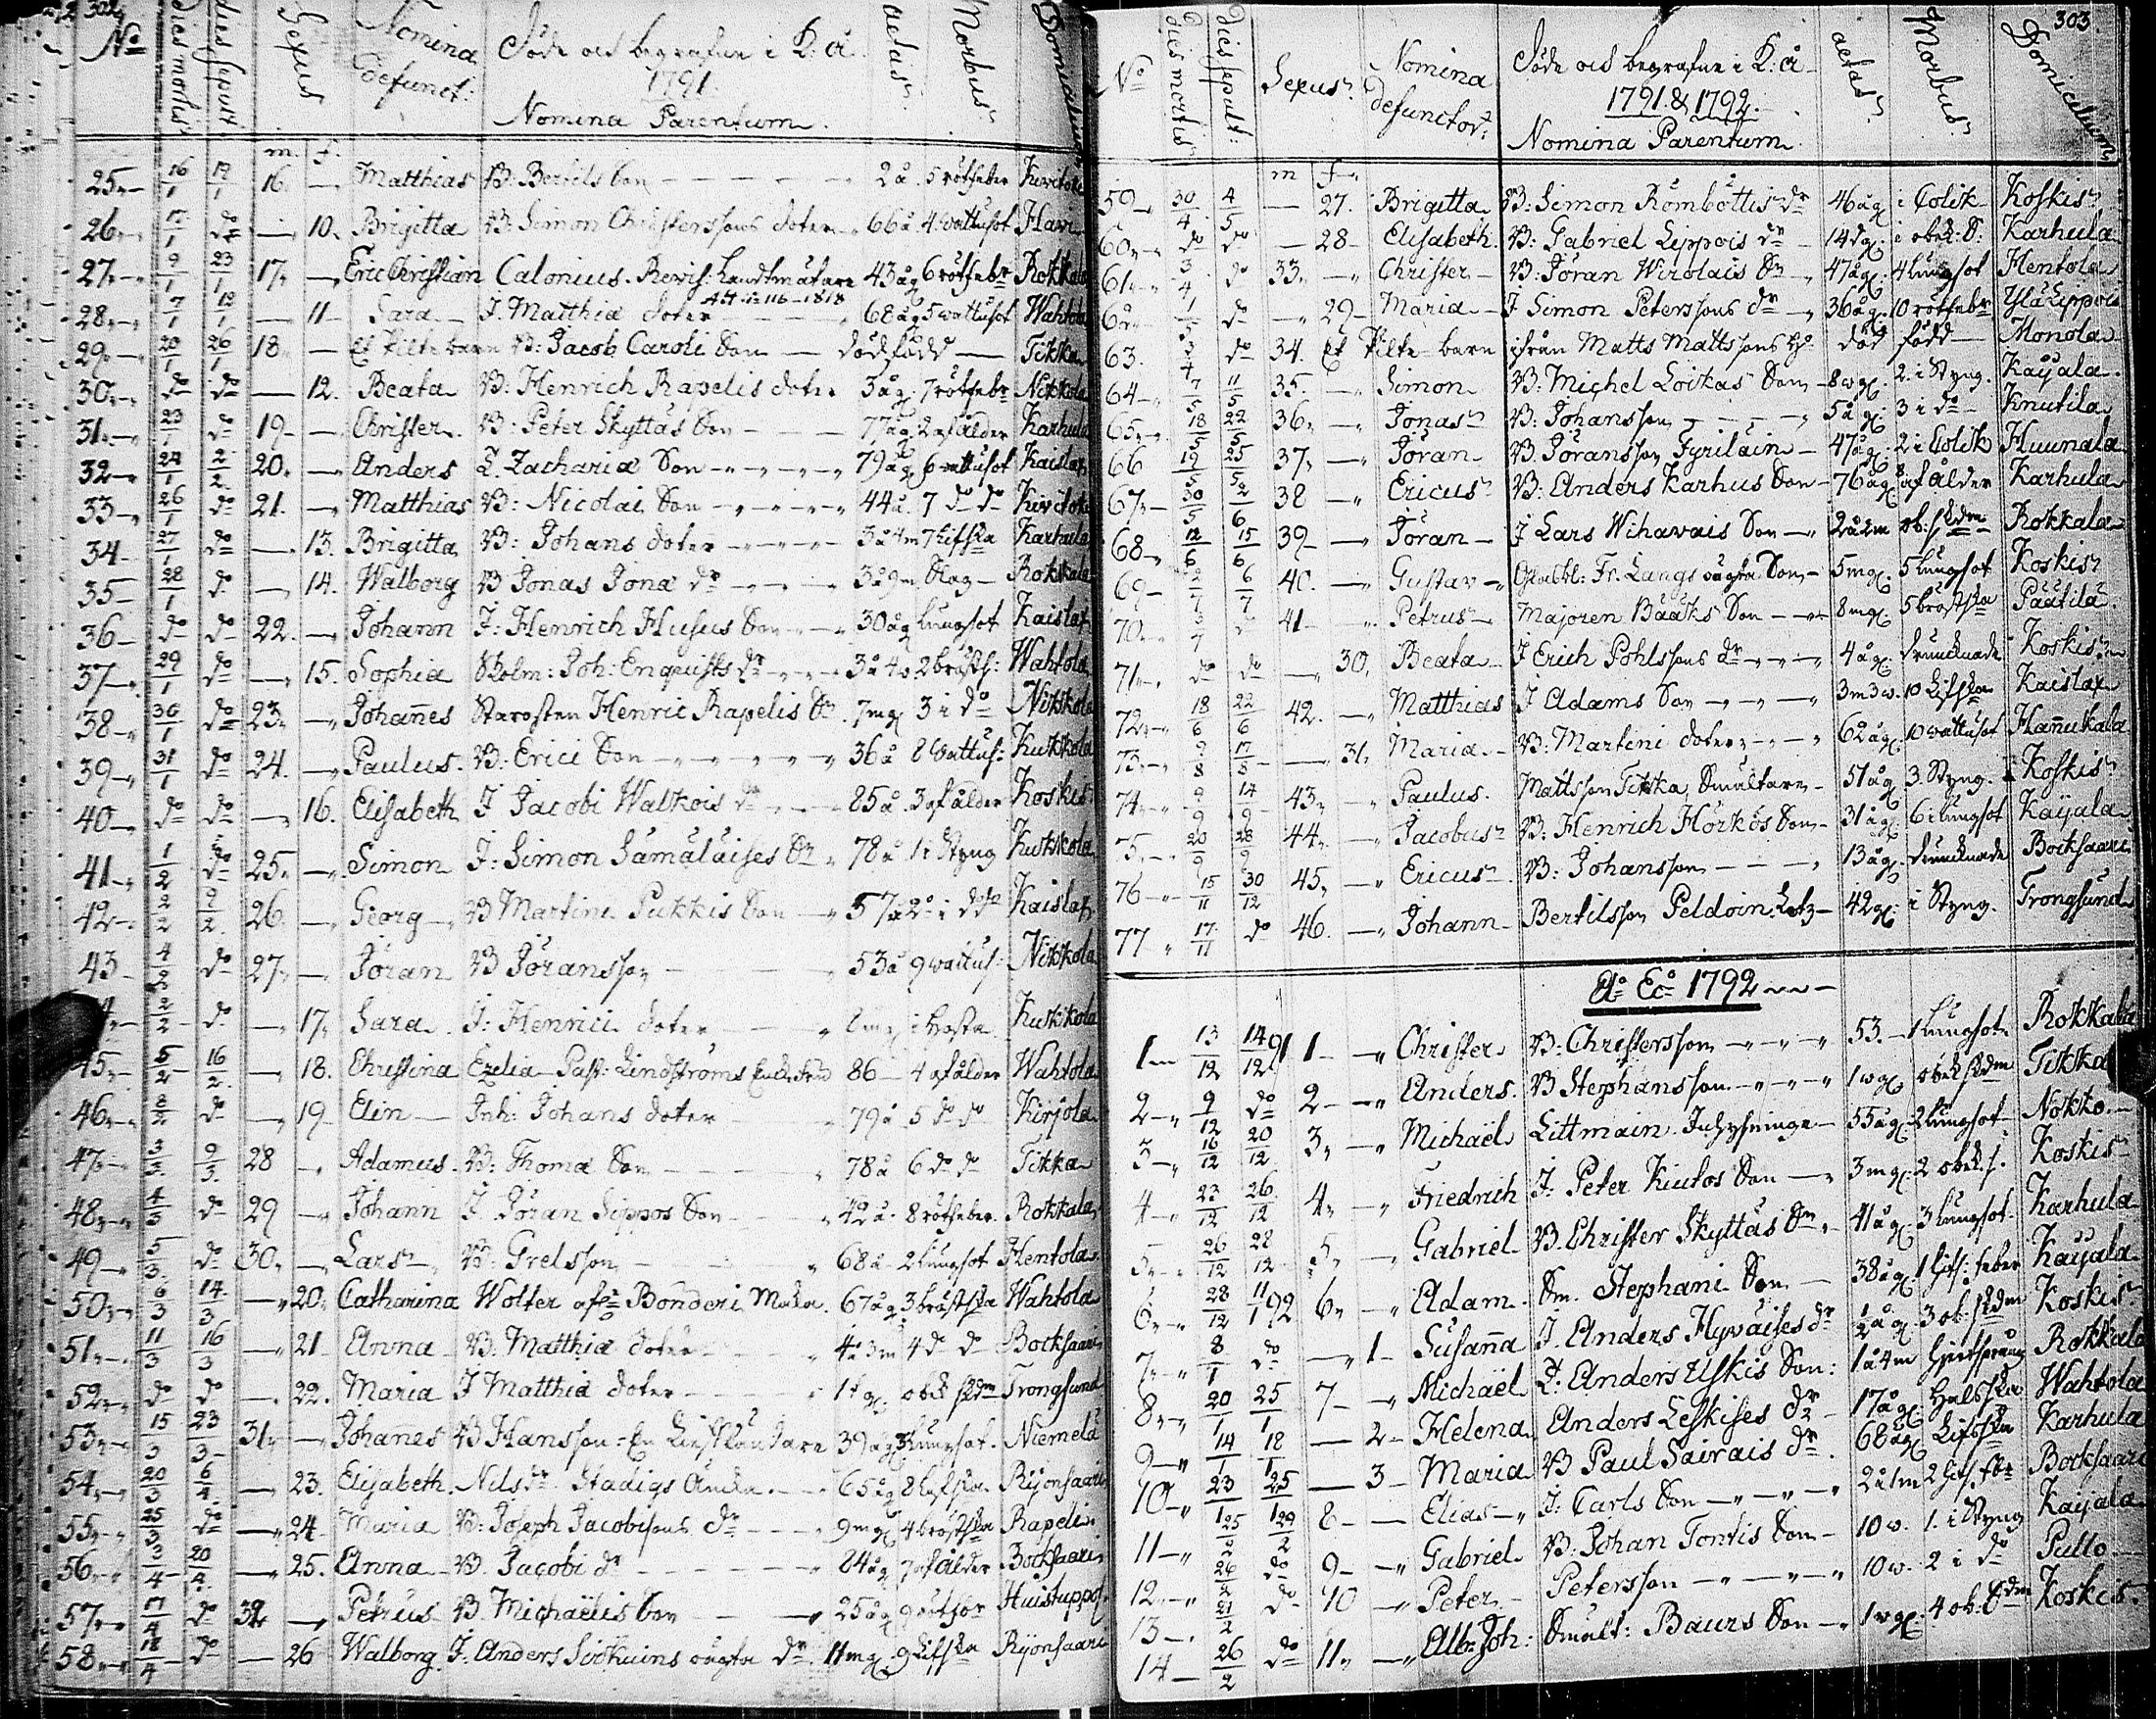 302
No Dies mortis dies sepult. Sexus Nomina defunct: Döde och begrafne i K:å 1791. Nomina Parentum. aetas Morbus Domicilium
m. f.
25 16/1 17/1 16. — Matthias B: Bertils Son 2 å. 5 rötfeber
26 17/1 do — 10. Brigitta B. Simon Christerssons doter 66 å 4 wattusot
27 9/1 23/1 17 — Eric Christian Calonius. Revis: Landtmätare 43 åg 6 rötfebr Rokkala
28 7/1 18/1 — 11 Sara J. Matthiæ doter 68 åg 5 wattusot Wahtola
29 20/1 26/1 18 — Et Pilte barn B: Jacob Caroli Son dödfödd Tikka
30 do do — 12. Beata B: Henrich Rapelis doter 3 åg 7 rötfebr Nikkola
31 23/1 do 19 — Christer B: Peter Skyttäs Son 77 åg af ålder Karhula
32 24/1 2/2 20. — Anders Zachariæ Son 79 åg 6 wattusot Kaislax
33 26/1 do 21. — Matthias B: Nicolai Son 44 å. 7 do do
34 27/1 do — 13. Brigitta B: Johans doter 3 å 4 m 7 Lifska Karhula
35 28/1 do — 14. Walborg B Jonas Jonæ dr 3 å 9 m Slag Rokkala
36 do do 22. — Johann J: Henrich Husus Son 30 åg lungsot Kaislax
37 29/1 do — 15. Sophia Skolm: Joh: Enquists dr 2 bröstf: Wahtola
38 30/1 do 23. — Johañes Starosten Henric Rapelis Sn 7 mg 3 i do Nikkola
39 31/1 do 24. — Paulus B: Erici Son 36 å 8 Wattus: Kukkola
40 do do — 16. Elisabeth J Jacobi Walkois dr 85 å. 3 af ålder Koskis
41 1/2 do 25. — Simon J: Simon Sämäläises Sn 78 å 1 i Styng Kukkola
42 2/2 9/2 26. — Georg B Martini Pukkis Son 57 å 2 i do Kaislax
43 4/2 do 27 — Jöran B Jöransson 53 å 9 wattus: Nikkola
2/2 do — 17. Sara J: Henrici doter i Hosta Kukkola
45 5/2 16/2 — 18. Christina Ezelia Past: Lindströms 86 4 af ålder Wahtola
46 8/2 do — 19 Elin Inh: Johans doter 79 å 5 do do Kirjola
47 3/3 9/3 28 — Adamus B: Thomæ Son 78 å 6 do do Tikka
48 4/3 do 29 — Johann J Jöran Sippos Son 42 å. 8 rötfeber Rokkala
49 5/3 do 30. — Lars B: Grelsson 68 å 2 lungsot Hentola
50 6/3 14/3 — 20. Catharina Wolter Bonderi Maka. 67 åg 3 bröstska Wahtola
51 11/3 16/3 — 21 Anna B: Matthiæ doter 4 å 3 m 4 do do Bocksaari
52 do do — 22. Maria J Matthiæ doter obek skdm Trongsund
53 15/3 23/3 31 — Johañes B Hansson 39 åg lungsot Niemelä
54 20/3 6/4 — 23. Elisabeth Nils dr Stadigs Änka 65 åg 8 Lifska Rijonsaari
55 25/3 do — 24 Maria B: Joseph Jacobsons dr 9 mg 4 bröstska Rapeli
56 3/4 20/4 — 25. Anna B. Jacobi dr 84 åg 7 af ålder Bocksaari
57 17/4 do 32 — Petrus B. Michaëlis Son 25 åg
58 18/4 do — 26 Walborg J. Anders Sirkuins oägta dr 11 mg 9 Lifska Rijonsaari
303
No Dies mortis Dies sepult: Sexus Nomina defunctor: Döde och begrafne i K:å 1791 & 1792. Nomina Parentum aetas Morbus Domicilium
m f
59 30/4 4/5 — 27. Brigitta B: Simon Römböttis dr 46 åg i Colik Koskis
60 do do — 28 Elisabeth B: Gabriel Lippois dr 14 dg: i obek: S: Karhula
61 3/4 do 33 — Christer B: Jöran Wirolais Sn 47 åg: 4 lungsot Hentola
62 1/5 do — 29 Maria J Simon Peterssons dr 36 åg: 10 rötfebr Yläsippois
63. 3/4 do 34. Et Pilte barn ifrån Matts Mattssons död född Monola
64 7/5 11/5 35. — Simon B: Michel Loikas Son 8 wg: 2. i Styng. Kaijala
65 18/5 22/5 36 — Jonas B: Johansson 5 åg: 3 i do Knutila
66 19/5 25/5 37 — Jöran B: Göransson Gyriläin 47 åg: 2 i Colik Huunala
67 30/5 2/6 38 — Ericus B: Anders Karhus Son 76 åg: af ålder Karhula
68 12/6 15/6 39 — Jöran J Lars Wihavais Son 2 å 2 m ob: skdm Rokkala
69 2/7 6/7 40. — Gustav Fr. Langs oägta Son 5 mg: 5 lungsot Koskis
70 3/7 do 41 — Petrus Majoren Bääks Son 8 mg: 5 bröstska Päätilä
71 do do — 30. Beata J Erich Pohlssons dr 4 åg: drunknade Koskis
72 18/6 22/6 42. — Matthias J Adams Son 3 m 3 w. 10 Lifska Kaislax
73 9/8 17/8 — 31. Maria B: Martini doter 62 åg: 10 wattusot Hañukala
74 9/9 14/9 43. — Paulus Mattsson Tikka Smultare 51 åg 3. Styng. Koskis
75 20/9 28/9 44. — Jacobus B: Henrich Hörkös Son 31 åg: 6 i lungsot Kaijala
76 15/11 30/12 45. — Ericus B: Johansson 13 åg. drunknade Bocksaari
77 17/11 do 46. — Johann Bertilsson Peldoin 42 åg: i Styng. Trongsund
Ao Eo 1792
1 13/12 14/12 91 1 — Christer B: Christersson 53. 1 lungsot Rokkala
2 9/12 do 2 — Anders B Stephansson 1 wg obek skdm Tikka
3 16/12 20/12 3 — Michaël Littmain Inhysninge 55 åg 2 lungsot Nokko
4 23/12 26/12 4 — Friedrich J: Peter Kiutos Son 3 mg: 2 obek. s. Koskis
5 26/12 28/12 5 — Gabriel B. Christer Skyttäs Sn 41 åg 3 lungsot Karhula
6 28/12 11/1 92 6 — Adam Sm. Stephani Son 38 åg. 1 Hits: feber Kaijala
7 8/1 do — 1 Susaña J. Anders Hywäises dr 3 ob: skdm Koskis
8 20/1 25/1 7 — Michaël Anders Uskis Son 1 å 4 m Rokkala
9 14/1 18/1 — 2 Helena Anders Leskises dr 17 åg Halsska Wahtola
10 23/1 25/1 — 3 Maria B Paul Sairais dr 68 åg Lifska Karhula
11 25/2 29/2 8 — Elias J: Carls Son 2 å 1 m 2 Bocksaari
12 26/2 do 9 — Gabriel B: Johan Tontis Son 10 w. 1. i Styng Kaijala
13 21/2 do 10 — Peter Petersson 10 w. 2 i do Pullo
14 26/2 do 11 — Albr: Joh: Smult: Baurs Son 1 wg: 4 ob. Sdm Koskis